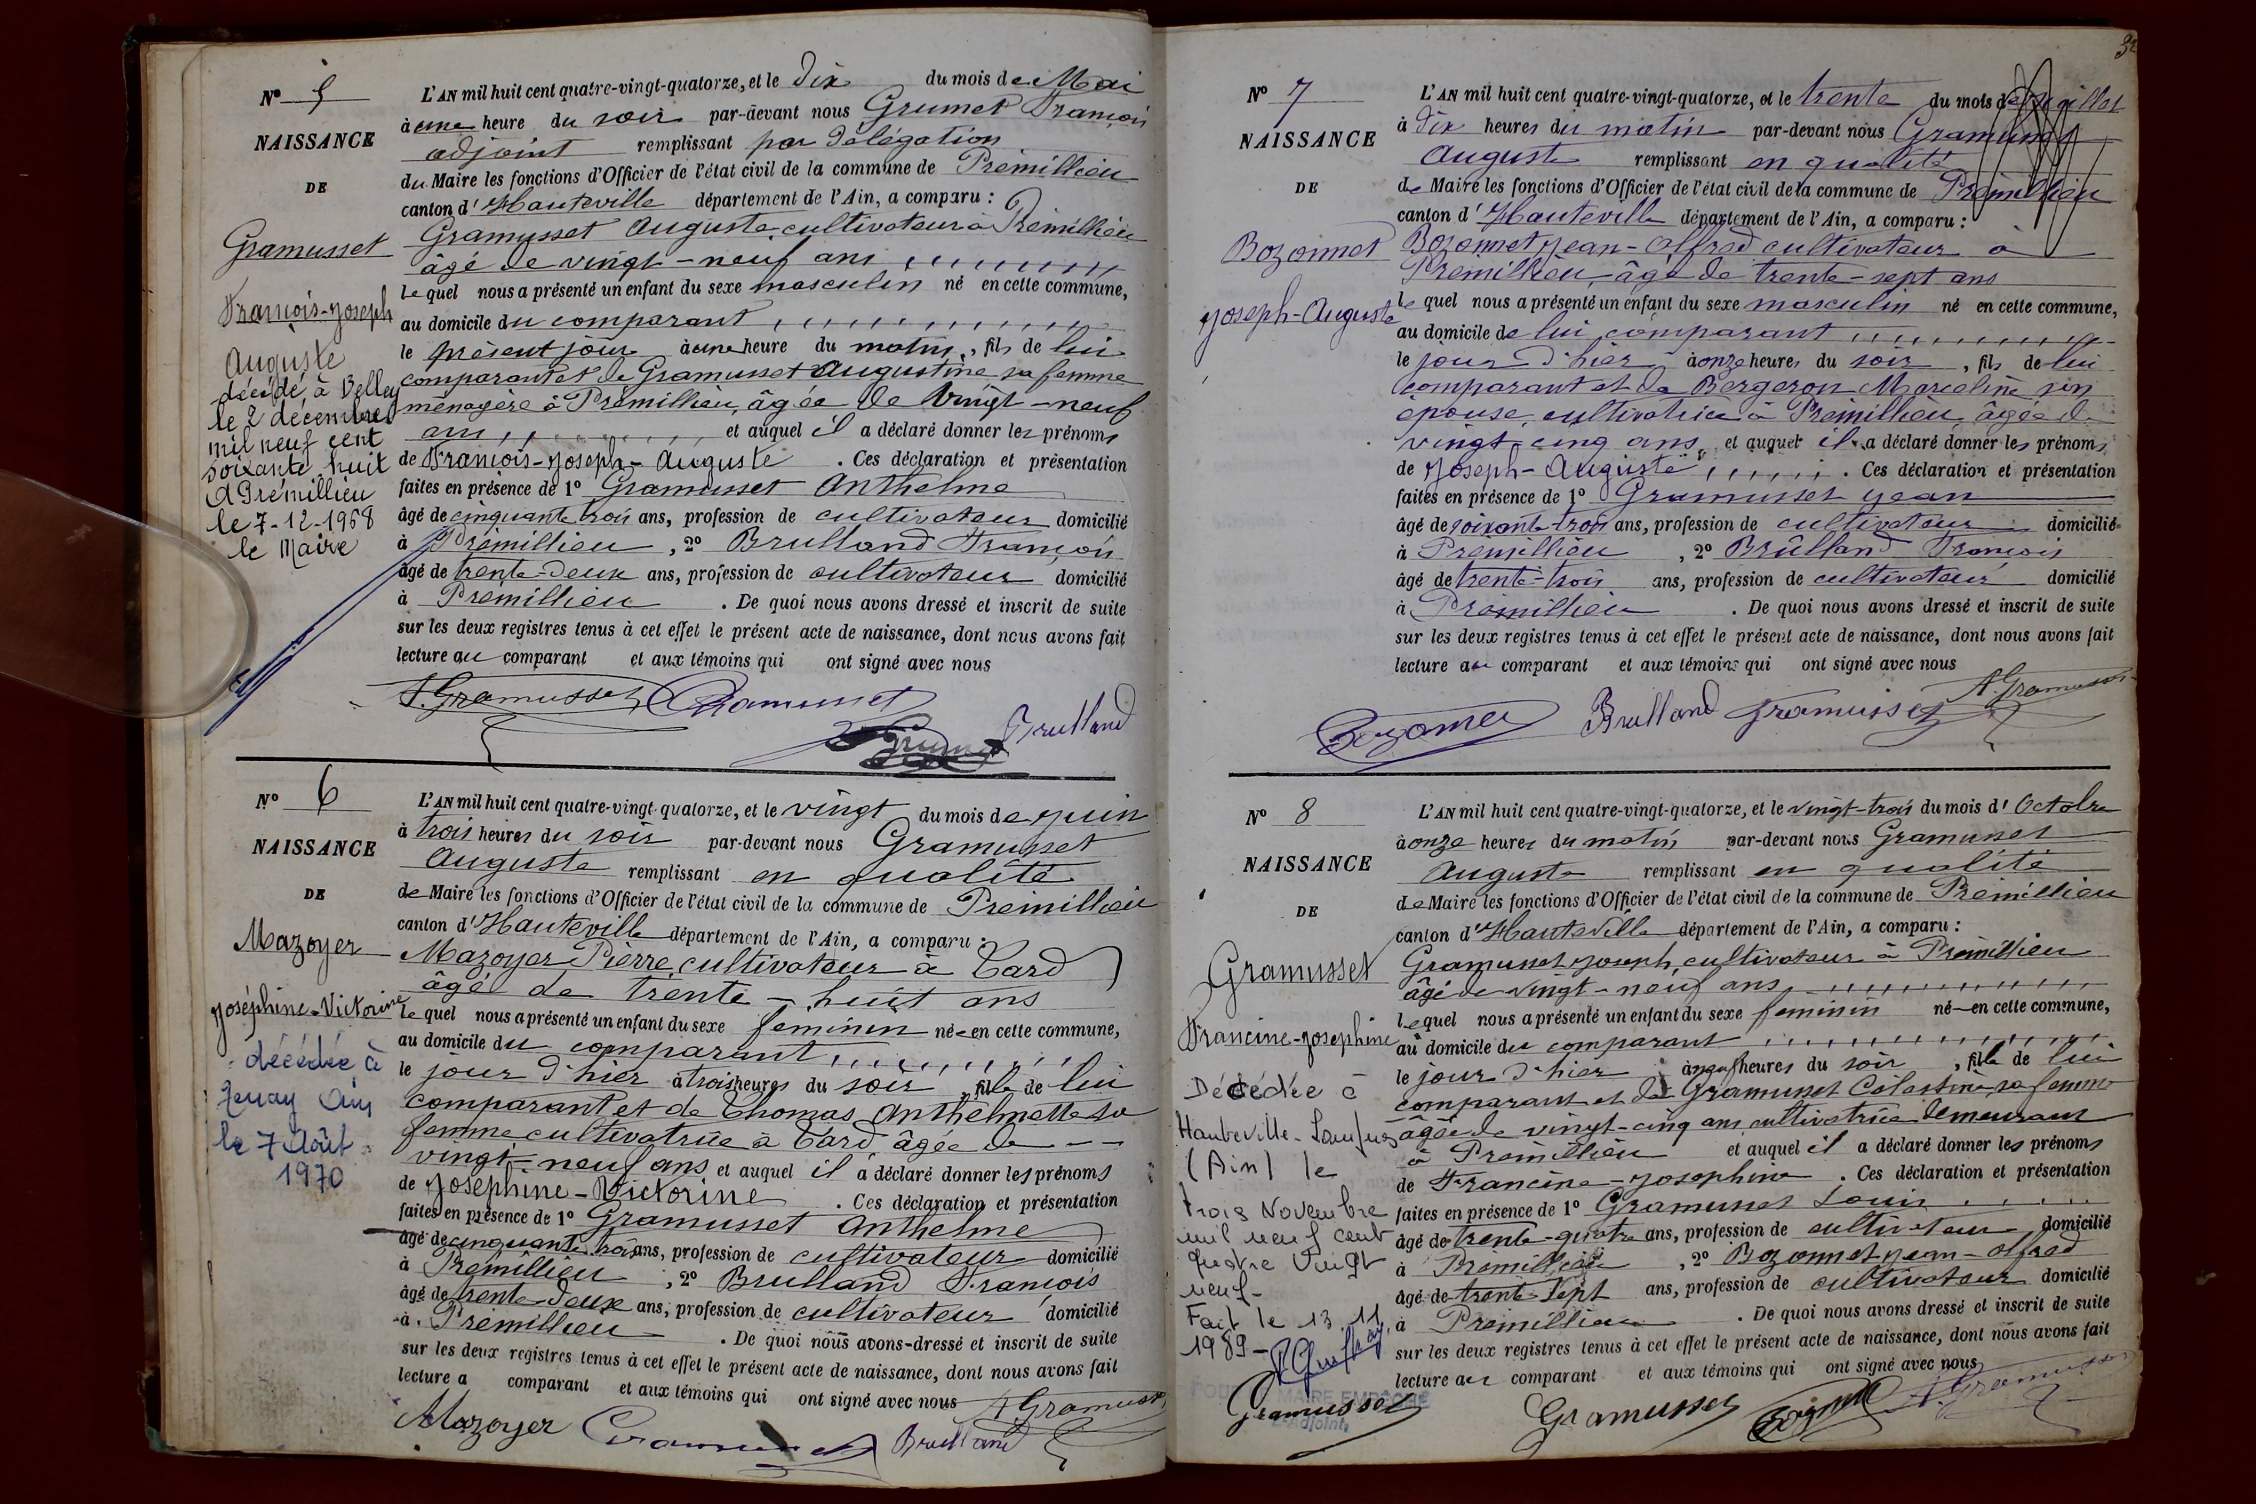 N° 5
NAISSANCE
DE
Gramusset
François-Joseph
Auguste
décédé à Belley
le 2 décembre
mil neuf cent
soixante huit
A Prémillieu
le 7-12-1968
le Maire
L'AN mil huit cent quatre-vingt-quatorze, et le dix du mois de Mai
à une heure du soir par-devant nous Grumet François
adjoint remplissant par délégation
du Maire les fonctions d'Officier de l'état civil de la commune de Prémillieu
canton d'Hauteville département de l'Ain, a comparu :
Gramusset Auguste cultivateur à Prémillieu
âgé de vingt-neuf ans
lequel nous a présenté un enfant du sexe masculin né en cette commune,
au domicile du comparant
le présent jour à une heure du matin, fils de lui
comparant et de Gramusset Augustine sa femme
ménagère à Prémillieu, âgée de vingt-neuf
ans et auquel il a déclaré donner les prénoms
de François-Joseph-Auguste. Ces déclaration et présentation
faites en présence de 1° Gramusset Anthelme
âgé de cinquante trois ans, profession de cultivateur domicilié
à Prémillieu, 2° Brulland François
âgé de trente-deux ans, profession de cultivateur domicilié
à Prémillieu. De quoi nous avons dressé et inscrit de suite
sur les deux registres tenus à cet effet le présent acte de naissance, dont nous avons fait
lecture au comparant et aux témoins qui ont signé avec nous
A. Gramusset Gramusset
Grumet Brulland
N° 6
NAISSANCE
DE
Mazoyer
Joséphine-Victorine
décédée à
Tenay Ain
le 7 Août
1970
L'AN mil huit cent quatre-vingt-quatorze, et le vingt du mois de juin
à trois heures du soir par-devant nous Gramusset
Auguste remplissant en qualité
de Maire les fonctions d'Officier de l'état civil de la commune de Prémillieu
canton d'Hauteville département de l'Ain, a comparu :
Mazoyer Pierre, cultivateur à Tard
âgé de trente-huit ans
lequel nous a présenté un enfant du sexe féminin née en cette commune,
au domicile du comparant
le jour d'hier à trois heures du soir, fille de lui
comparant et de Thomas Anthelmette sa
femme cultivatrice à Tard âgée de
vingt-neuf ans et auquel il a déclaré donner les prénoms
de Joséphine-Victorine. Ces déclaration et présentation
faites en présence de 1° Gramusset Anthelme
âgé de cinquante trois ans, profession de cultivateur domicilié
à Prémillieu, 2° Brulland François
âgé de trente deux ans, profession de cultivateur domicilié
à Prémillieu. De quoi nous avons dressé et inscrit de suite
sur les deux registres tenus à cet effet le présent acte de naissance, dont nous avons fait
lecture a comparant et aux témoins qui ont signé avec nous A. Gramusset
Mazoyer Gramusset Brulland
N° 7
NAISSANCE
DE
Bozonnet
Joseph-Auguste
L'AN mil huit cent quatre-vingt-quatorze, et le trente du mois de juillet
à dix heures du matin par-devant nous Gramusset
Auguste remplissant en qualité
de Maire les fonctions d'Officier de l'état civil de la commune de Prémillieu
canton d'Hauteville département de l'Ain, a comparu :
Bozonnet Jean-Alfred cultivateur à
Prémillieu, âgé de trente-sept ans
lequel nous a présenté un enfant du sexe masculin né en cette commune,
au domicile de lui comparant
le jour d'hier à onze heures du soir, fils de lui
comparant et de Bergeron Marceline son
épouse, cultivatrice à Prémillieu âgée de
vingt-cinq ans, et auquel il a déclaré donner les prénoms
de Joseph-Auguste. Ces déclaration et présentation
faites en présence de 1° Gramusset Jean
âgé de soixante-trois ans, profession de cultivateur domicilié
à Prémillieu, 2° Brulland François
âgé de trente-trois ans, profession de cultivateur domicilié
à Prémillieu. De quoi nous avons dressé et inscrit de suite
sur les deux registres tenus à cet effet le présent acte de naissance, dont nous avons fait
lecture au comparant et aux témoins qui ont signé avec nous
Bozonnet Brulland Gramusset A. Gramusset
N° 8
NAISSANCE
DE
Gramusset
Francine-Josephine
Décédée à
Hauteville-Lompnes
(Ain) le
trois Novembre
mil neuf cent
quatre Vingt
neuf-
Fait le 13.11.
1989-
MAIRE EMPÊCHÉ
L'Adjoint,
L'AN mil huit cent quatre-vingt-quatorze, et le vingt-trois du mois d'Octobre
à onze heures du matin par-devant nous Gramusset
Auguste remplissant en qualité
de Maire les fonctions d'Officier de l'état civil de la commune de Prémillieu
canton d'Hauteville département de l'Ain, a comparu :
Gramusset Joseph, cultivateur à Prémillieu
âgé de vingt-neuf ans
lequel nous a présenté un enfant du sexe féminin né en cette commune,
au domicile du comparant
le jour d'hier à neuf heures du soir, fille de lui
comparant et de Gramusset Célestine sa femme
âgée de vingt-cinq ans cultivatrice demeurant
à Prémillieu et auquel il a déclaré donner les prénoms
de Francine-Josephine. Ces déclaration et présentation
faites en présence de 1° Gramusset Louis
âgé de trente-quatre ans, profession de cultivateur domicilié
à Prémillieu, 2° Bozonnet Jean-Alfred
âgé de trente-sept ans, profession de cultivateur domicilié
à Prémillieu. De quoi nous avons dressé et inscrit de suite
sur les deux registres tenus à cet effet le présent acte de naissance, dont nous avons fait
lecture au comparant et aux témoins qui ont signé avec nous
Gramusset Gramusset Bozonnet A. Gramusset